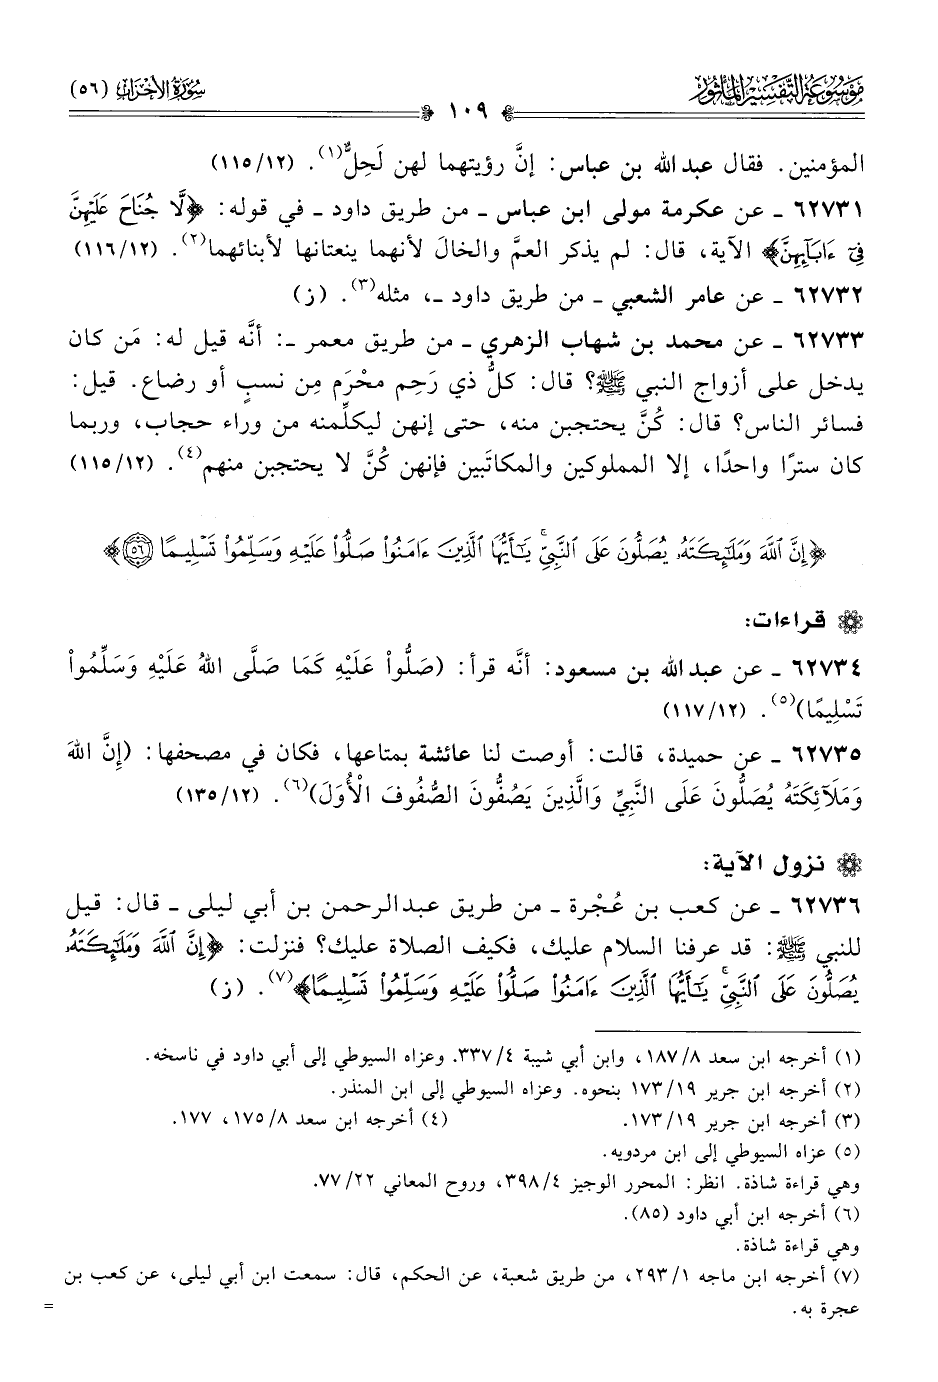 موسوعة التفسير المأثور
سورة الأحزاب (٥٦)
١٠٩
المؤمنين. فقال عبد الله بن عباس: إنَّ رؤيتهما لهن لَحِلٌّ(١). (١١٥/١٢)
٦٢٧٣١ ـ عن عكرمة مولى ابن عباس ـ من طريق داود ـ في قوله: ﴿لَّا جُنَاحَ عَلَيْهِنَّ
فِىٓ ءَابَآئِهِنَّ﴾ الآية، قال: لم يذكر العمَّ والخالَ لأنهما ينعتانها لأبنائهما(٢). (١١٦/١٢)
٦٢٧٣٢ ـ عن عامر الشعبي ـ من طريق داود ـ، مثله(٣). (ز)
٦٢٧٣٣ ـ عن محمد بن شهاب الزهري ـ من طريق معمر ـ: أنَّه قيل له: مَن كان
يدخل على أزواج النبي ﷺ؟ قال: كلُّ ذي رَحِم محْرَم مِن نسبٍ أو رضاع. قيل:
فسائر الناس؟ قال: كُنَّ يحتجبن منه، حتى إنهن ليكلِّمنه من وراء حجاب، وربما
كان سترًا واحدًا، إلا المملوكين والمكاتَبين فإنهن كُنَّ لا يحتجبن منهم(٤). (١١٥/١٢)
﴿إِنَّ ٱللَّهَ وَمَلَٰٓئِكَتَهُۥ يُصَلُّونَ عَلَى ٱلنَّبِىِّ ۚ يَٰٓأَيُّهَا ٱلَّذِينَ ءَامَنُوا۟ صَلُّوا۟ عَلَيْهِ وَسَلِّمُوا۟ تَسْلِيمًا ۝٥٦﴾
قراءات:
٦٢٧٣٤ ـ عن عبد الله بن مسعود: أنَّه قرأ: (صَلُّواْ عَلَيْهِ كَمَا صَلَّى اللهُ عَلَيْهِ وَسَلِّمُواْ
تَسْلِيمًا)(٥). (١١٧/١٢)
٦٢٧٣٥ ـ عن حميدة، قالت: أوصت لنا عائشة بمتاعها، فكان في مصحفها: (إِنَّ اللهَ
وَمَلَآئِكَتَهُ يُصَلُّونَ عَلَى النَّبِيِّ وَالَّذِينَ يَصُفُّونَ الصُّفُوفَ الْأُوَلَ)(٦). (١٣٥/١٢)
نزول الآية:
٦٢٧٣٦ ـ عن كعب بن عُجْرة ـ من طريق عبدالرحمن بن أبي ليلى ـ قال: قيل
للنبي ﷺ: قد عرفنا السلام عليك، فكيف الصلاة عليك؟ فنزلت: ﴿إِنَّ ٱللَّهَ وَمَلَٰٓئِكَتَهُۥ
يُصَلُّونَ عَلَى ٱلنَّبِىِّ ۚ يَٰٓأَيُّهَا ٱلَّذِينَ ءَامَنُوا۟ صَلُّوا۟ عَلَيْهِ وَسَلِّمُوا۟ تَسْلِيمًا﴾(٧). (ز)
(١) أخرجه ابن سعد ١٨٧/٨، وابن أبي شيبة ٣٣٧/٤. وعزاه السيوطي إلى أبي داود في ناسخه.
(٢) أخرجه ابن جرير ١٧٣/١٩ بنحوه. وعزاه السيوطي إلى ابن المنذر.
(٣) أخرجه ابن جرير ١٧٣/١٩. (٤) أخرجه ابن سعد ١٧٥/٨، ١٧٧.
(٥) عزاه السيوطي إلى ابن مردويه.
وهي قراءة شاذة. انظر: المحرر الوجيز ٣٩٨/٤، وروح المعاني ٧٧/٢٢.
(٦) أخرجه ابن أبي داود (٨٥).
وهي قراءة شاذة.
(٧) أخرجه ابن ماجه ٢٩٣/١، من طريق شعبة، عن الحكم، قال: سمعت ابن أبي ليلى، عن كعب بن
عجرة به. =